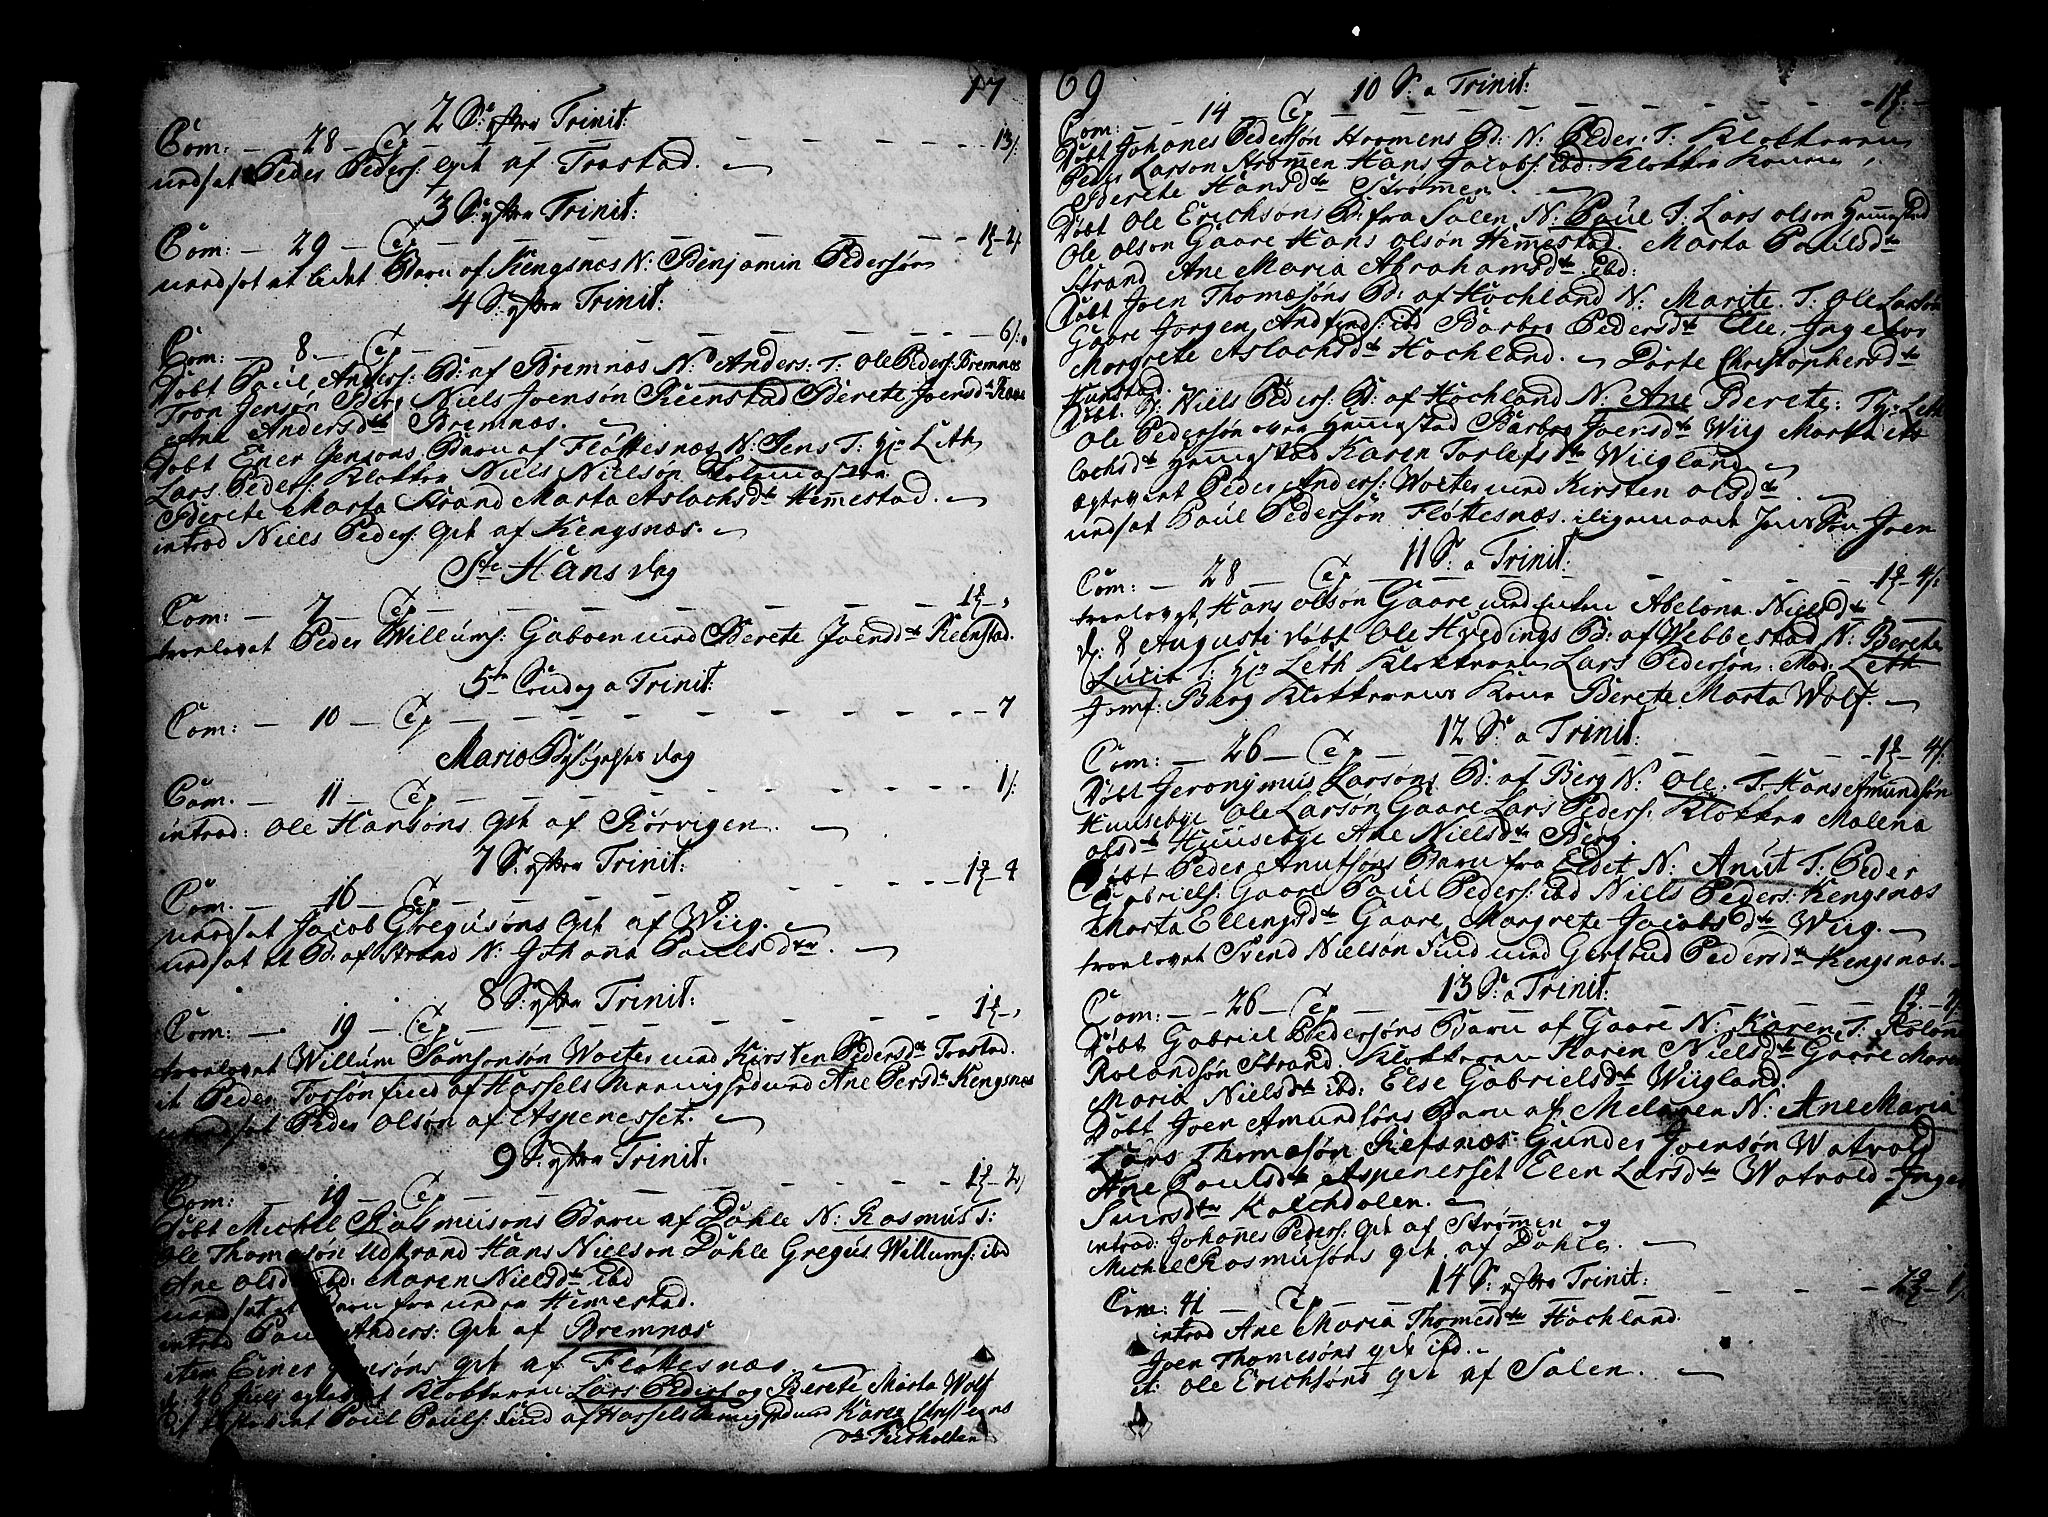 17
2 S: efter Trinit:
Com: — 28 — Cap — 13/:
udsat Peder Peders: qvt af Trastad.
3 S: efter Trinit:
Com: — 29 — Cap
uudsat et lidet Barn af Kengsnæs N: Benjamin Pedersøn
4 S: efter Trinit:
Com: — 8 — 6/:
Døbt Paul Anders: B: af Bremnæs N: Anders: T: Ole Peders: Bremnæs
Tron Jensøn Berg Niels Joensøn Reenstad Berete Joensdtr
Ane Andersdtr Bremnæs.
Døbt Ener Jensøns Barn af Fløttesnæs N: Jens T: Hr Leth
Lars Peders: Klokker Niels Nielsøn
Berete Marta Strand Marta Aslachsdtr Hemmestad.
introd Niels Peders: qvt af Kengsnæs.
Ste Hans dag
Com: — 7 — Cap
troelovet Peder Willums: Gaboen med Berete Joensdtr Reenstad.
5te Sondag a Trinit:
Com: — 10 — Cap — 7
Mariæ Besøgelses dag
Com. — 11 — Cap — 1/:
introd: Ole Hansøns qvt af Rørvigen.
7 S: efter Trinit:
Com. — 16 — Cap
uudsat Jacob Gregusøns qvt af Wiig.
udsat et B: af Strand N: Johana Paulsdtr.
8 S: efter Trinit:
Com: — 19 — Cap
troelovet Willum Samsonsøn Wolter med Kirsten Pedersdtr Trastad.
it Peder Torsøn find af Hassels med Ane Persdtr Kengsnæs
uudsat Peder Olsøn af Aspenesset.
9 S: efter Trinit:
Com: — 19 — Cap
Døbt Michel Rasmusøns Barn af Døhle N: Rasmus T:
Ole Thomesøn Udstrand Hans Nielsøn Døhle Gregus Willums: ibd
Ane Olsdtr ibd: Maren Nielsdtr ibd
uudsat et Barn fra nedre Hemestad.
introd Paul Anders: qvt af Bremnæs
item Einer Jensøns qvt af Fløttesnæs.
d: 26 Juli Klokkeren Lars Peders: og Berete Marta Wolf
Paul Pauls: find af Hassels med Karen Christens
69
10 S: a Trinit:
Com: — 14 — Cap
Døbt Johanes Pedersøn Strømens B: N: Peder: T: Klokkeren
Peder Larsøn Strømen Hans Jacobs: ibd: Klokker Konen
Berete Hansdtr Strømen.
Døbt Ole Erichsøns B: fra Salen N: Paul T: Lars Olsøn Hemestad
Ole Olsøn Gaare Hans Olsøn Hemestad. Marta Paulsdtr
Strand Ane Maria Abrahamsdtr ibd:
Døbt Joen Thomæsøns B: af Hochland N: Marite. T: Ole Larsøn
Gaare Jorgen Andfinds: ibd Barbro Pedersdtr
Margrete Aslachsdtr Hochland. Dorte Christophersdtr
Kunstad.
Døbt. Niels Peders: B: af Hochland N: Ane Berete: T: Hr Leth
Ole Pedersøn øvre Hemestad Barbro Joensdtr Wiig Marta As
lachsdtr Hemestad Karen Torlefsdtr Wiigland
ægteviet Peder Anders: Wolter med Kirsten Olsdtr.
udsat Paul Pedersøn Fløttesnæs. iligemaade Jens Søn Joen
11 S: a Trinit:
Com: — 28 — Cap
troelovet Hans Olsøn Gaare med enken Abelona Nielsdtr
d: 8 Augusti Døbt Ole Hvedings B: af Webbestad N: Berete
Lucia T: Hr Leth Klokkeren Lars Pedersøn: Mad: Leth
Jomf: Barg Klokkerens Kone Berete Marta Wolf.
12 S: a Trinit:
Com: — 26 — Cap
Døbt Jeronymus Larsøns B: af Berg N: Ole. T: Hans Amundsøn
Huusebye Ole Larsøn Gaare Lars Peders: Klokker Malena
Olsdtr Huusebye Ane Nielsdtr Berg.
Døbt Peder Anutsøns Barn fra Eidet N: Anut T: Peder
Gabriels: Gaare Paul Peders: ibd Niels Peders: Kengsnæs
Marta Ellingsdtr Gaare, Margrete Jacobsdtr Wiig.
troelovet Svend Nielsøn find med Gertrud Pedersdtr Kengsnæs.
13 S: a Trinit:
Com: — 26 — Cap
Døbt Gabriel Pedersøns Barn af Gaare N: Karen T:
Rolandsøn Strand Klokkeren Karen Nielsdtr Gaare Maren
Maria Nielsdtr ibd: Else Gabrielsdtr Wiigland.
Døbt Joen Amundsøns Barn af Melaaen N: Ane Maria
Lars Thomæsøn Refsnæs Gunder Joensøn Watvold
Ane Paulsdtr Aspenesset Elen Larsdtr Watvold Inger
Siversdtr Kaschdalen.
introd: Johanes Peders: qvt af Strømen og
Michel Rasmusøns qvt. af Døhle.
14 S: efter Trinit:
Com: 41 — Cap
introd Ane Maria Thomesdtr Hochland.
Joen Thomesøns qvt ibd.
it: Ole Erichsøns qvt af Salen.